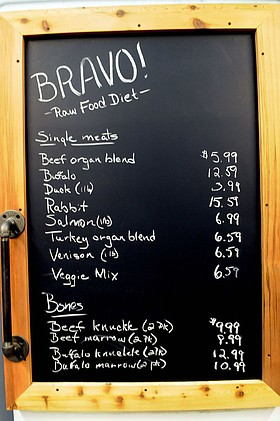 BRAVO!
-Raw Food Diet-
Single meats
Beef organ blend $5.99
Buffalo 12.59
Duck (1lb) 3.99
Rabbit 15.59
Salmon (1lb) 6.99
Turkey organ blend 6.59
Venison (1lb) 6.59
Veggie Mix 6.59
Bones
Beef knuckle (2 Pk) $9.99
Beef marrow (2 Pk) 8.99
Buffalo knuckle (2Pk) 12.99
Buffalo marrow (2 pk) 10.99